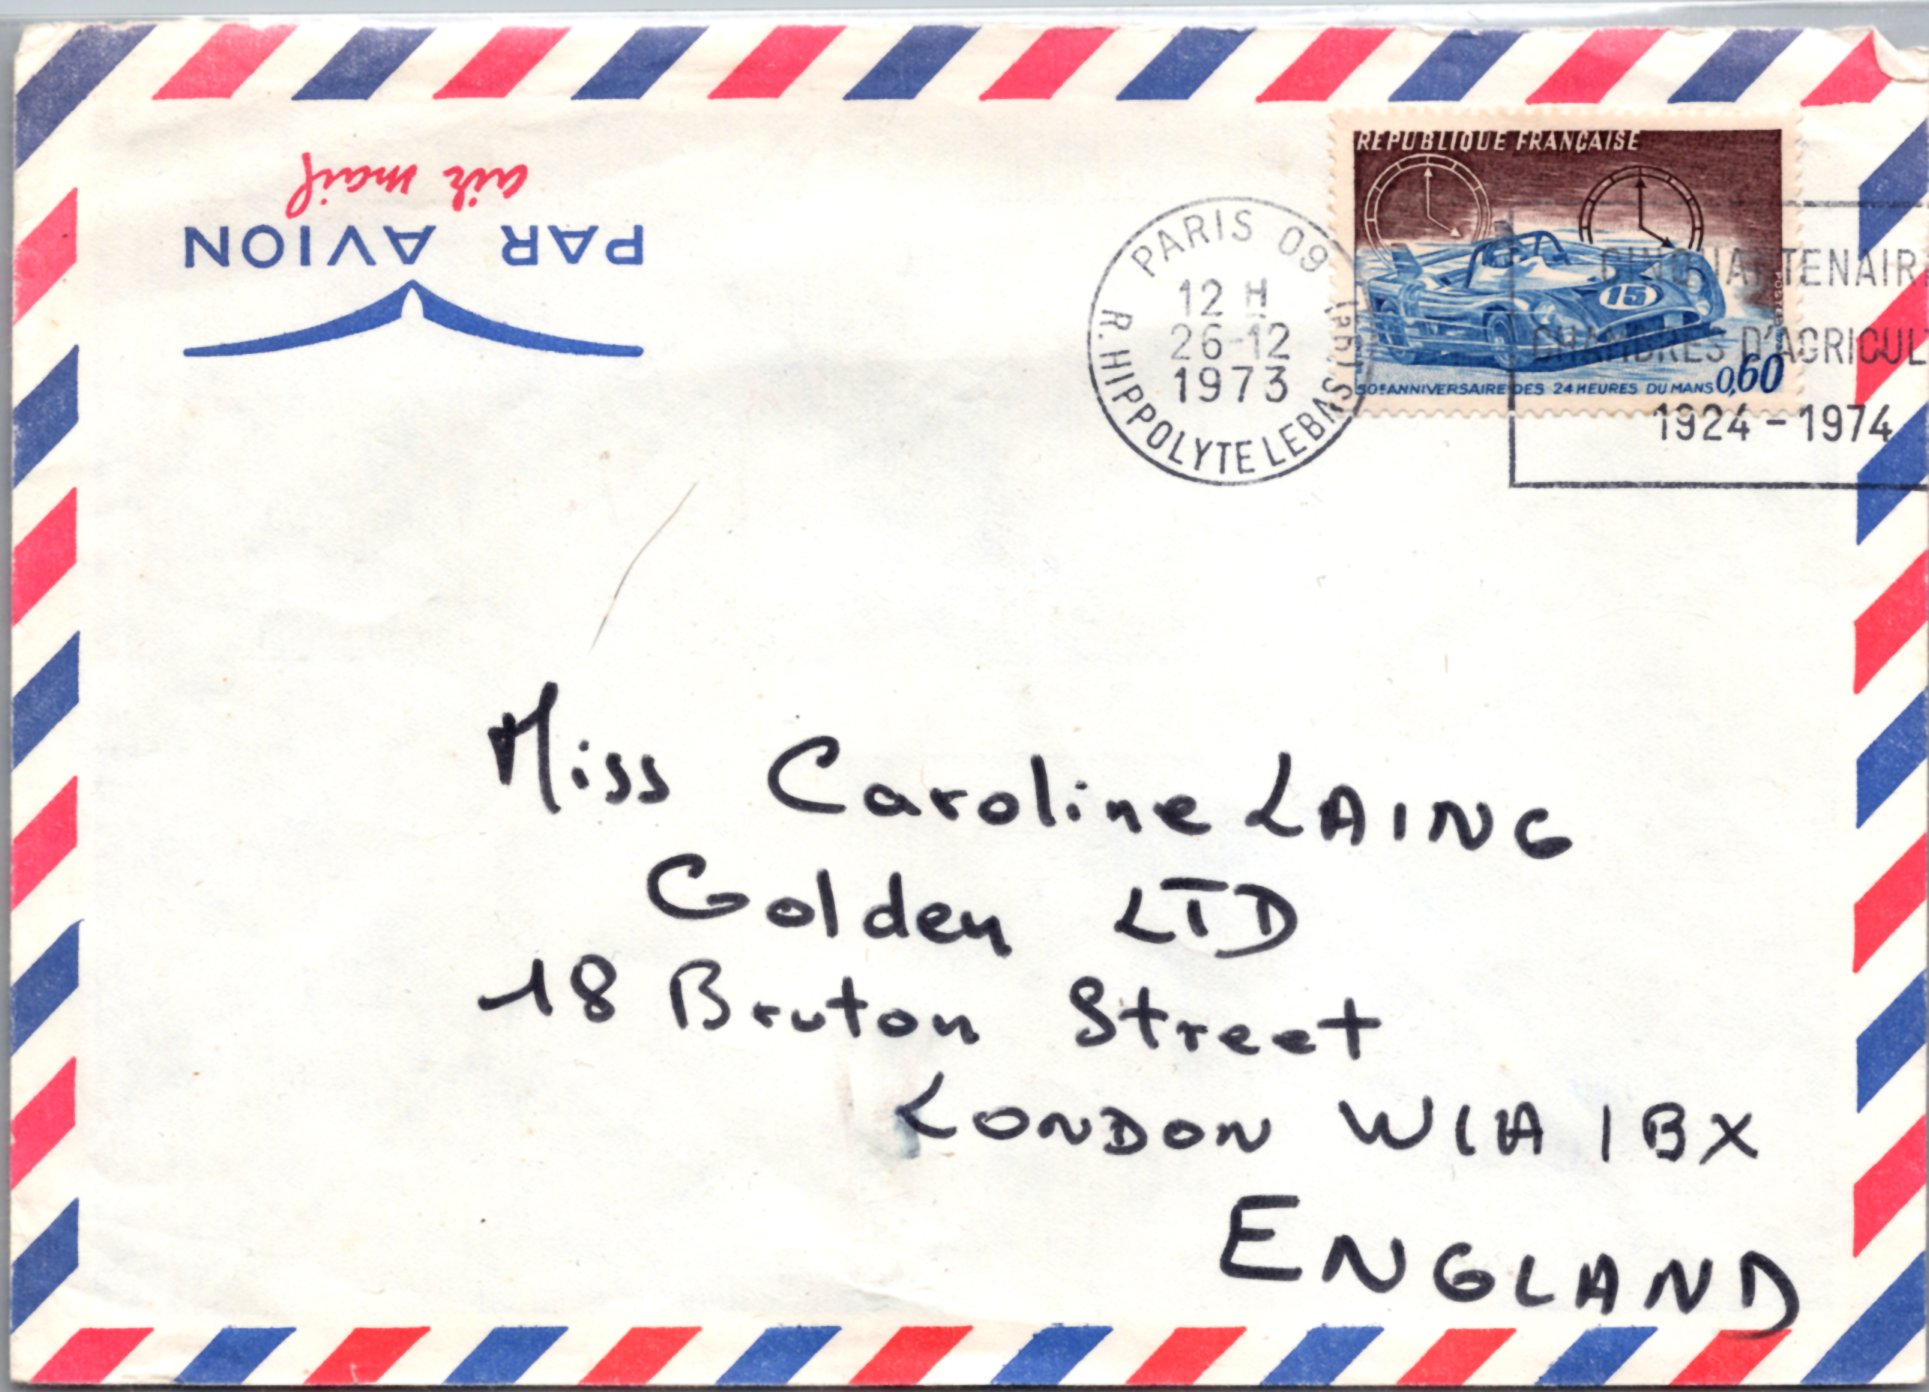 air mail
PAR AVION
PARIS 09
12 H
26-12
1973
R. HIPPOLYTE LEBAS (9E)
REPUBLIQUE FRANÇAISE
15
50e ANNIVERSAIRE DES 24 HEURES DU MANS 0,60
CINQUANTENAIR
CHAMBRES D'AGRICUL
1924 - 1974
Miss Caroline LAING
Golden LTD
18 Bruton Street
LONDON W1A 1BX
ENGLAND